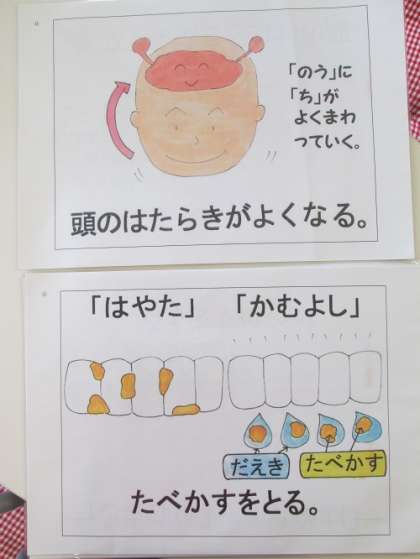 「のう」に
「ち」が
よくまわ
っていく。
頭のはたらきがよくなる。
「はやた」 「かむよし」
だえき たべかす
たべかすをとる。